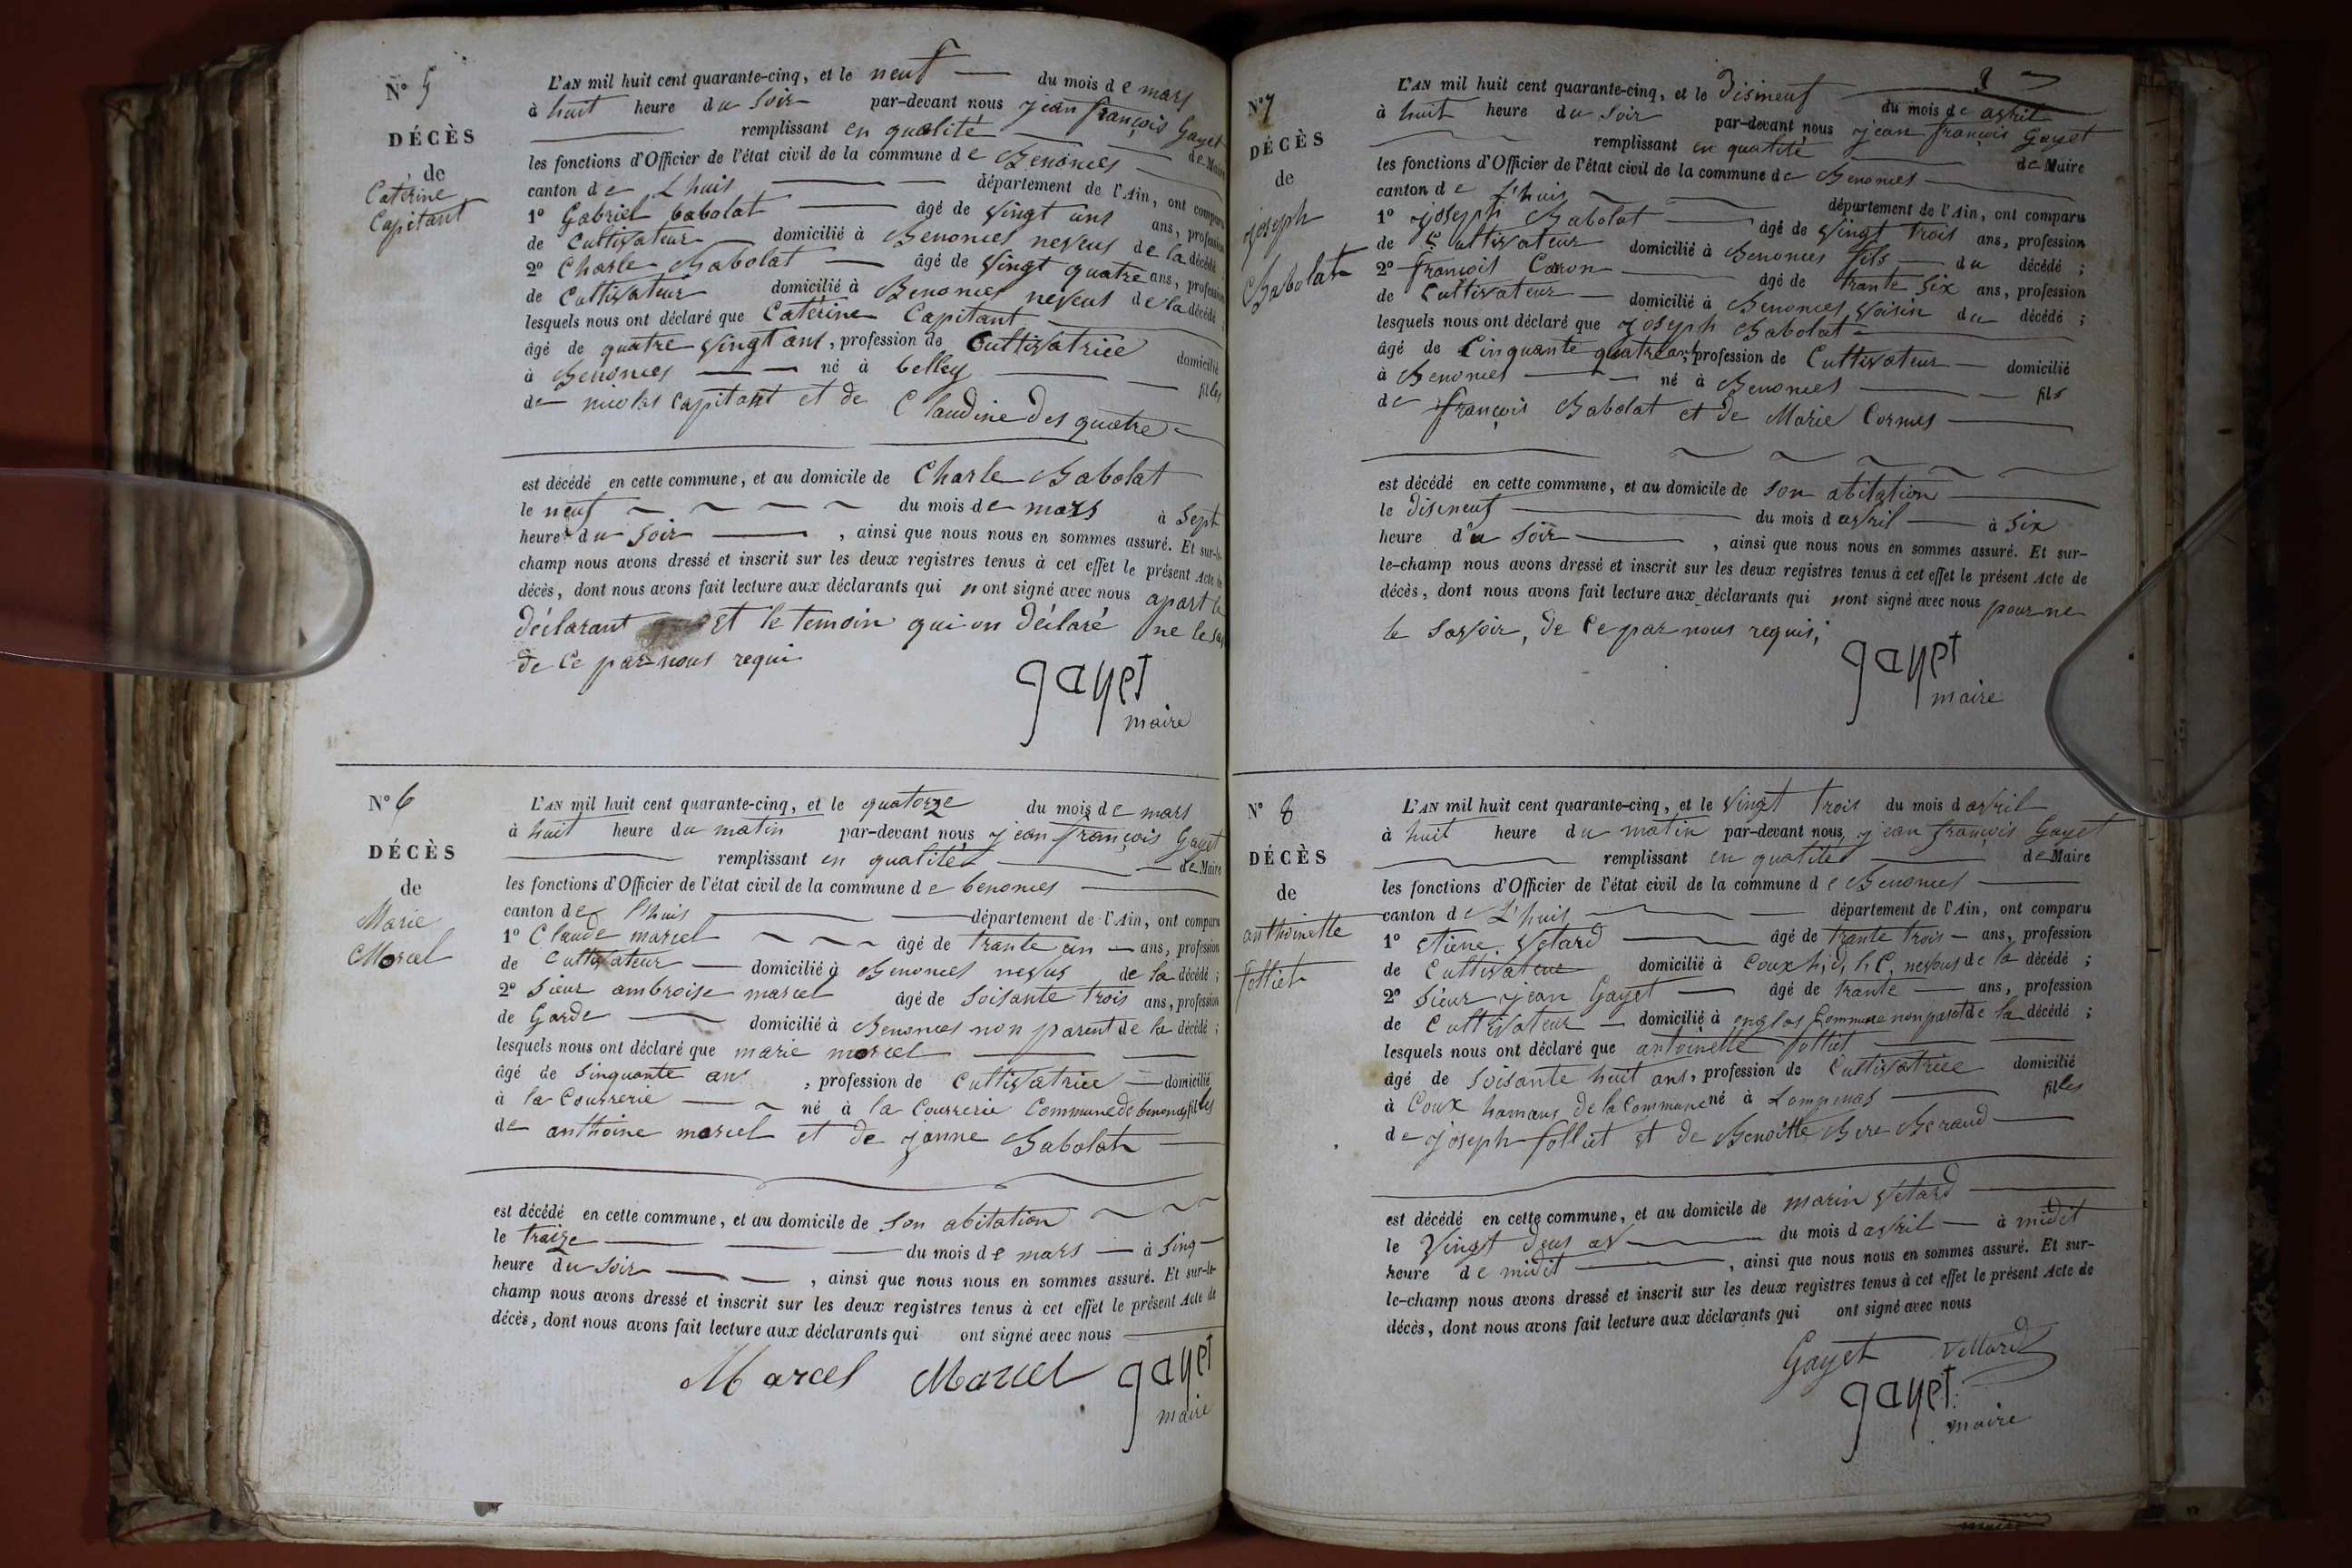 N° 5
DÉCÈS
de
Catérine
Capitant
L'AN mil huit cent quarante-cinq, et le neuf du mois de mars
à huit heure du soir par-devant nous jean françois Gayet
remplissant en qualité de Maire
les fonctions d'Officier de l'état civil de la commune de Benonces
canton de Lhuis département de l'Ain, ont comparu
1° Gabriel babolat âgé de vingt ans ans, profession
de Cultivateur domicilié à Benonces neveus de la décédé ;
2° Charle Babolat âgé de vingt quatre ans, profession
de Cultivateur domicilié à Benonces neveus de la décédé ;
lesquels nous ont déclaré que Catérine Capitant
âgé de quatre vingt ans, profession de Cultivatrice domicilié
à Benonces né à belley filles
de nicolas Capitant et de Claudine des quatre
est décédé en cette commune, et au domicile de Charle Babolat
le neuf du mois de mars à sept
heure du soir , ainsi que nous nous en sommes assuré. Et sur-le-
champ nous avons dressé et inscrit sur les deux registres tenus à cet effet le présent Acte de
décès, dont nous avons fait lecture aux déclarants qui n ont signé avec nous apart le
déclarant et le temoin qui on déclaré ne le sa
de Ce par nous requi
gayet
maire
N° 6
DÉCÈS
de
Marie
Marcel
L'AN mil huit cent quarante-cinq, et le quatorze du mois de mars
à huit heure du matin par-devant nous jean françois Gayet
remplissant en qualité de Maire
les fonctions d'Officier de l'état civil de la commune de benonces
canton de lhuis département de l'Ain, ont comparu
1° Claude marcel âgé de trante un ans, profession
de Cultivateur domicilié à Benonces nevus de la décédé ;
2° Sieur ambroise marcel âgé de soisante trois ans, profession
de Garde domicilié à Benonces non parent de la décédé ;
lesquels nous ont déclaré que marie marcel
âgé de sinquante an , profession de Cultivatrice domicilié
à la Courrerie né à la Courrerie Commune de benonces filles
de anthoine marcel et de janne Babolat
est décédé en cette commune, et au domicile de son abitation
le traize du mois de mars à sinq
heure du soir , ainsi que nous nous en sommes assuré. Et sur-le-
champ nous avons dressé et inscrit sur les deux registres tenus à cet effet le présent Acte de
décès, dont nous avons fait lecture aux déclarants qui ont signé avec nous
Marcel Marcel gayet
maire
N° 7
DÉCÈS
de
joseph
Babolat
L'AN mil huit cent quarante-cinq, et le disneuf du mois de avril
à huit heure du soir par-devant nous jean françois Gayet
remplissant en qualité de Maire
les fonctions d'Officier de l'état civil de la commune de Benonces
canton de L'huis département de l'Ain, ont comparu
1° joseph Babolat âgé de vingt trois ans, profession
de Cultivateur domicilié à Benonces fils du décédé ;
2° françois Caron âgé de trante six ans, profession
de Cultivateur domicilié à Benonces voisin du décédé ;
lesquels nous ont déclaré que joseph Babolat
âgé de Cinquante quatre ans, profession de Cultivateur domicilié
à Benonces né à Benonces fils
de françois Babolat et de Marie Cornus
est décédé en cette commune, et au domicile de son abitation
le disneuf du mois d avril à six
heure du soir , ainsi que nous nous en sommes assuré. Et sur-
le-champ nous avons dressé et inscrit sur les deux registres tenus à cet effet le présent Acte de
décès, dont nous avons fait lecture aux déclarants qui n ont signé avec nous pour ne
le savoir, de Ce par nous requis,
gayet
maire
N° 8
DÉCÈS
de
anthoinette
folliet
L'AN mil huit cent quarante-cinq, et le vingt trois du mois d avril
à huit heure du matin par-devant nous jean françois Gayet
remplissant en qualité de Maire
les fonctions d'Officier de l'état civil de la commune de Benonces
canton de L'huis département de l'Ain, ont comparu
1° Etiene Vetard âgé de trante trois ans, profession
de Cultivateur domicilié à Coux de la décédé ;
2° Sieur jean Gayet âgé de trante ans, profession
de Cultivateur domicilié à onglas Commune non parent de la décédé ;
lesquels nous ont déclaré que antoinette folliet
âgé de soisante huit ans, profession de Cultivatrice domicilié
à Coux hamaus de la Commune né à Lompenas filles
de joseph folliet et de Benoitte Bere Beraud
est décédé en cette commune, et au domicile de marin Vetard
le Vingt deus du mois d avril à midit
heure de midit , ainsi que nous nous en sommes assuré. Et sur-
le-champ nous avons dressé et inscrit sur les deux registres tenus à cet effet le présent Acte de
décès, dont nous avons fait lecture aux déclarants qui ont signé avec nous
Gayet Vettard
gayet
maire